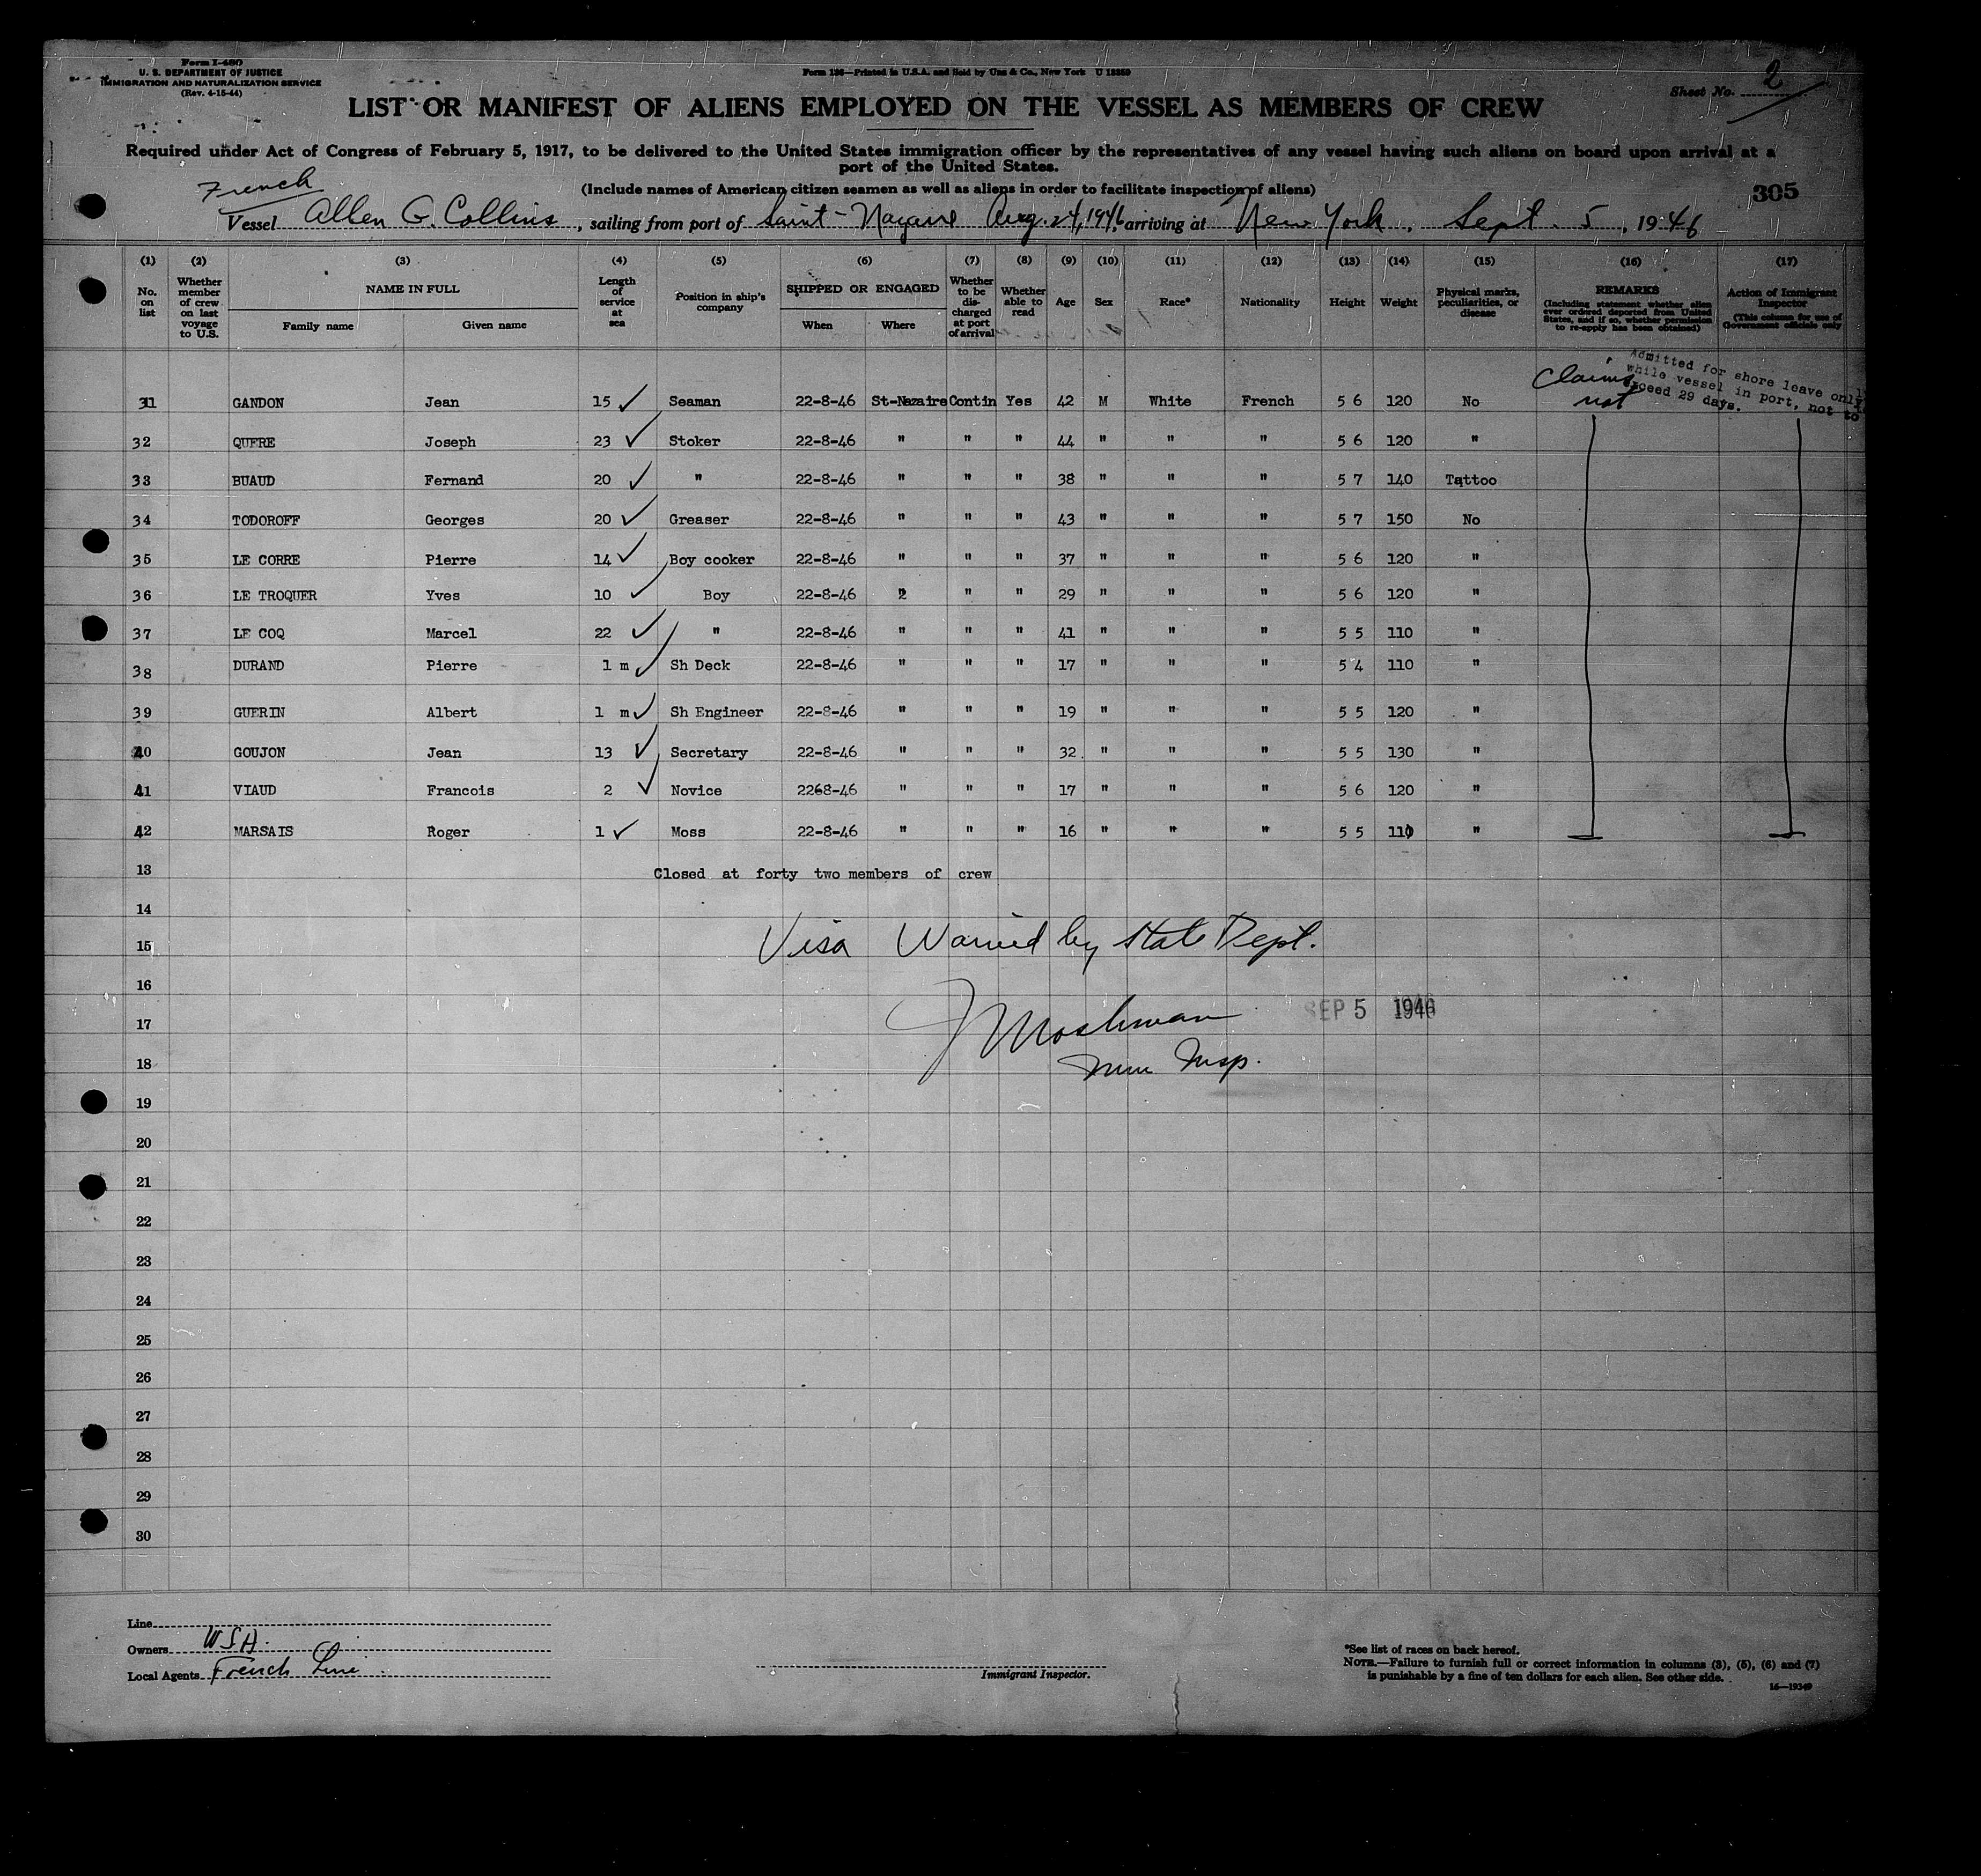 Form I-480
U. S. DEPARTMENT OF JUSTICE
IMMIGRATION AND NATURALIZATION SERVICE
(Rev. 4-15-44)
Form 136—Printed in U.S.A. and Sold by Unz & Co., New York
Sheet No. 2
LIST OR MANIFEST OF ALIENS EMPLOYED ON THE VESSEL AS MEMBERS OF CREW
Required under Act of Congress of February 5, 1917, to be delivered to the United States immigration officer by the representatives of any vessel having such aliens on board upon arrival at a
port of the United States.
(Include names of American citizen seamen as well as aliens in order to facilitate inspection of aliens)
305
French
Vessel Allen G. Collins, sailing from port of Saint-Nazaire Aug. 24, 1946, arriving at New York, Sept. 5, 1946
(1) (2) (3) (4) (5) (6) (7) (8) (9) (10) (11) (12) (13) (14) (15) (16) (17)
No. on list
Whether member of crew on last voyage to U.S.
NAME IN FULL
Family name Given name
Length of service at sea
Position in ship's company
SHIPPED OR ENGAGED
When Where
Whether to be discharged at port of arrival
Whether able to read
Age
Sex
Race*
Nationality
Height
Weight
Physical marks, peculiarities, or disease
REMARKS
(Including statement whether alien ever ordered deported from United States, and if so, whether permission to re-apply has been obtained)
Action of Immigrant Inspector
(This column for use of Government officials only
Claims not
Admitted for shore leave only
while vessel in port, not to
exceed 29 days.
31 GANDON Jean 15 ✓ Seaman 22-8-46 St-Nazaire Contin Yes 42 M White French 5 6 120 No
32 QUERE Joseph 23 ✓ Stoker 22-8-46 " " " 44 " " " 5 6 120 "
33 BUAUD Fernand 20 ✓ " 22-8-46 " " " 38 " " " 5 7 140 Tattoo
34 TODOROFF Georges 20 ✓ Greaser 22-8-46 " " " 43 " " " 5 7 150 No
35 LE CORRE Pierre 14 ✓ Boy cooker 22-8-46 " " " 37 " " " 5 6 120 "
36 LE TROQUER Yves 10 ✓ Boy 22-8-46 " " " 29 " " " 5 6 120 "
37 LE COQ Marcel 22 ✓ " 22-8-46 " " " 41 " " " 5 5 110 "
38 DURAND Pierre 1 m ✓ Sh Deck 22-8-46 " " " 17 " " " 5 4 110 "
39 GUERIN Albert 1 m ✓ Sh Engineer 22-8-46 " " " 19 " " " 5 5 120 "
40 GOUJON Jean 13 ✓ Secretary 22-8-46 " " " 32 " " " 5 5 130 "
41 VIAUD Francois 2 ✓ Novice 2268-46 " " " 17 " " " 5 6 120 "
42 MARSAIS Roger 1 ✓ Moss 22-8-46 " " " 16 " " " 5 5 110 "
13 Closed at forty two members of crew
14
15 Visa Waived by State Dept.
16
17 J Moshman SEP 5 1946
18 Imm Insp.
19
20
21
22
23
24
25
26
27
28
29
30
Line
Owners W S A.
Local Agents French Line
Immigrant Inspector.
*See list of races on back hereof.
NOTE.—Failure to furnish full or correct information in columns (3), (5), (6) and (7)
is punishable by a fine of ten dollars for each alien. See other side.
16—19349